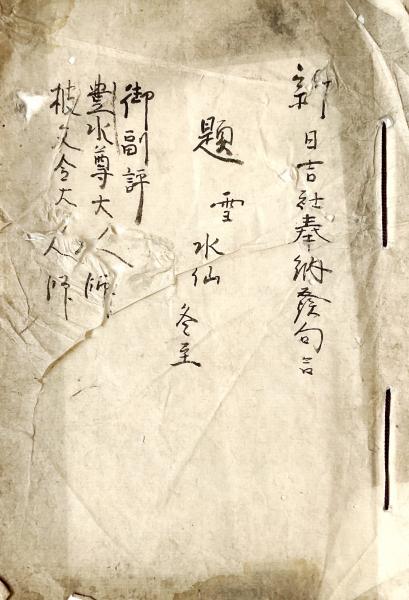 新日吉社奉納發句合
題 雪 水仙 冬至
御副評
豊水尊大人師
大人師